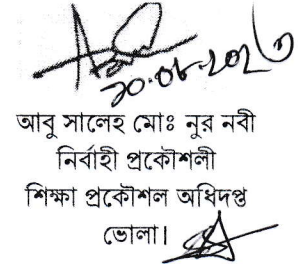 ২০.০৮.২০২৩
আবু সালেহ মোঃ নুর নবী
নির্বাহী প্রকৌশলী
শিক্ষা প্রকৌশল অধিদপ্ত
ভোলা।